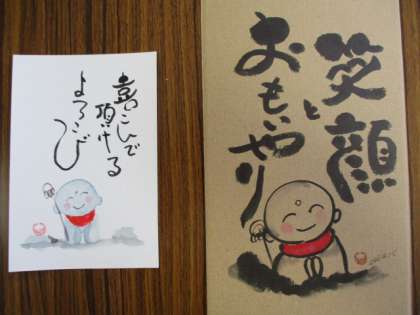 喜こんで
頂ける
よろこび
笑顔
と
おもいやり